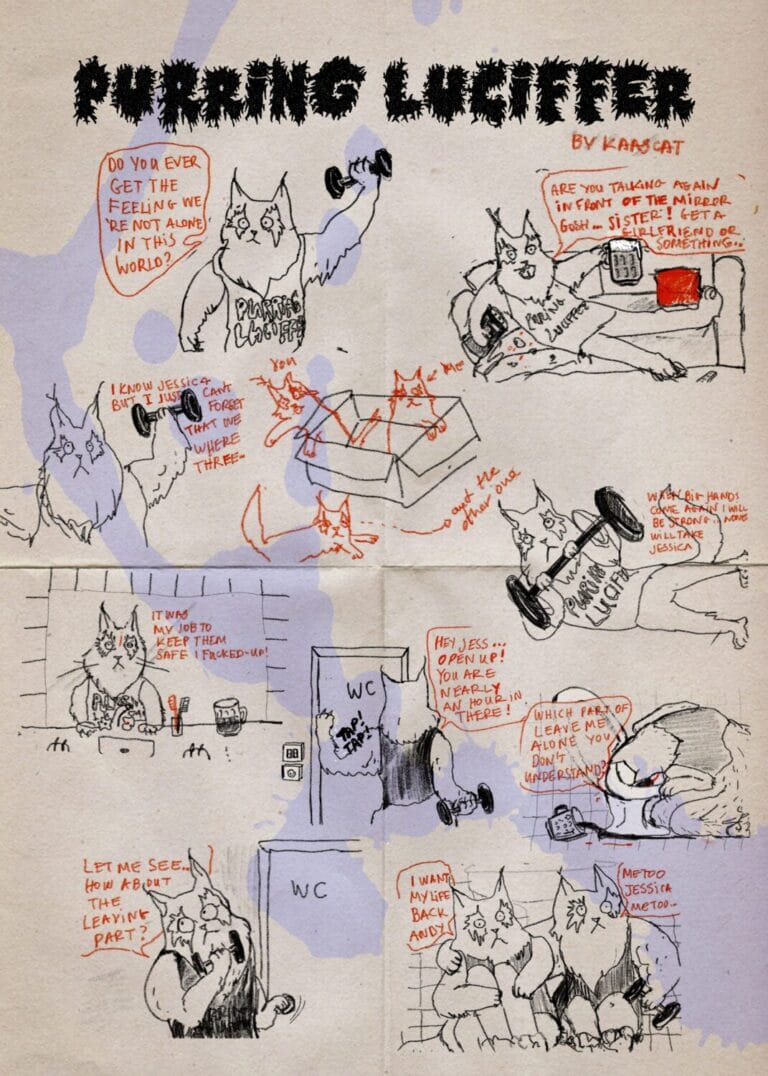 PURRING LUCIFFER
BY KAASCAT
DO YOU EVER
GET THE
FEELING WE
'RE NOT ALONE
IN THIS
WORLD?
PURRING
LUCIFFE
ARE YOU TALKING AGAIN
IN FRONT OF THE MIRROR
GOSH... SISTER! GET A
GIRLFRIEND OR
SOMETHING..
PURRING
LUCIFFER
I KNOW JESSICA
BUT I JUST CANT
FORGET
THAT WE
WHERE
THREE..
YOU
ME
and the
other one
WHEN BIG HANDS
COME AGAIN I WILL
BE STRONG.. NONE
WILL TAKE
JESSICA
PURRING
LUCIFF
IT WAS
MY JOB TO
KEEP THEM
SAFE I FUCKED-UP!
HEY JESS...
OPEN UP!
YOU ARE
NEARLY
AN HOUR IN
THERE!
WC
TAP!
TAP!
WHICH PART OF
LEAVE ME
ALONE YOU
DON'T
UNDERSTAND?
LET ME SEE..
HOW ABOUT
THE
LEAVING
PART?
WC
I WANT
MY LIFE
BACK
ANDY
METOO
JESSICA
METOO..